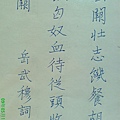 山闕壯志饑餐胡
匈奴血待從頭收
闕　岳武穆詞